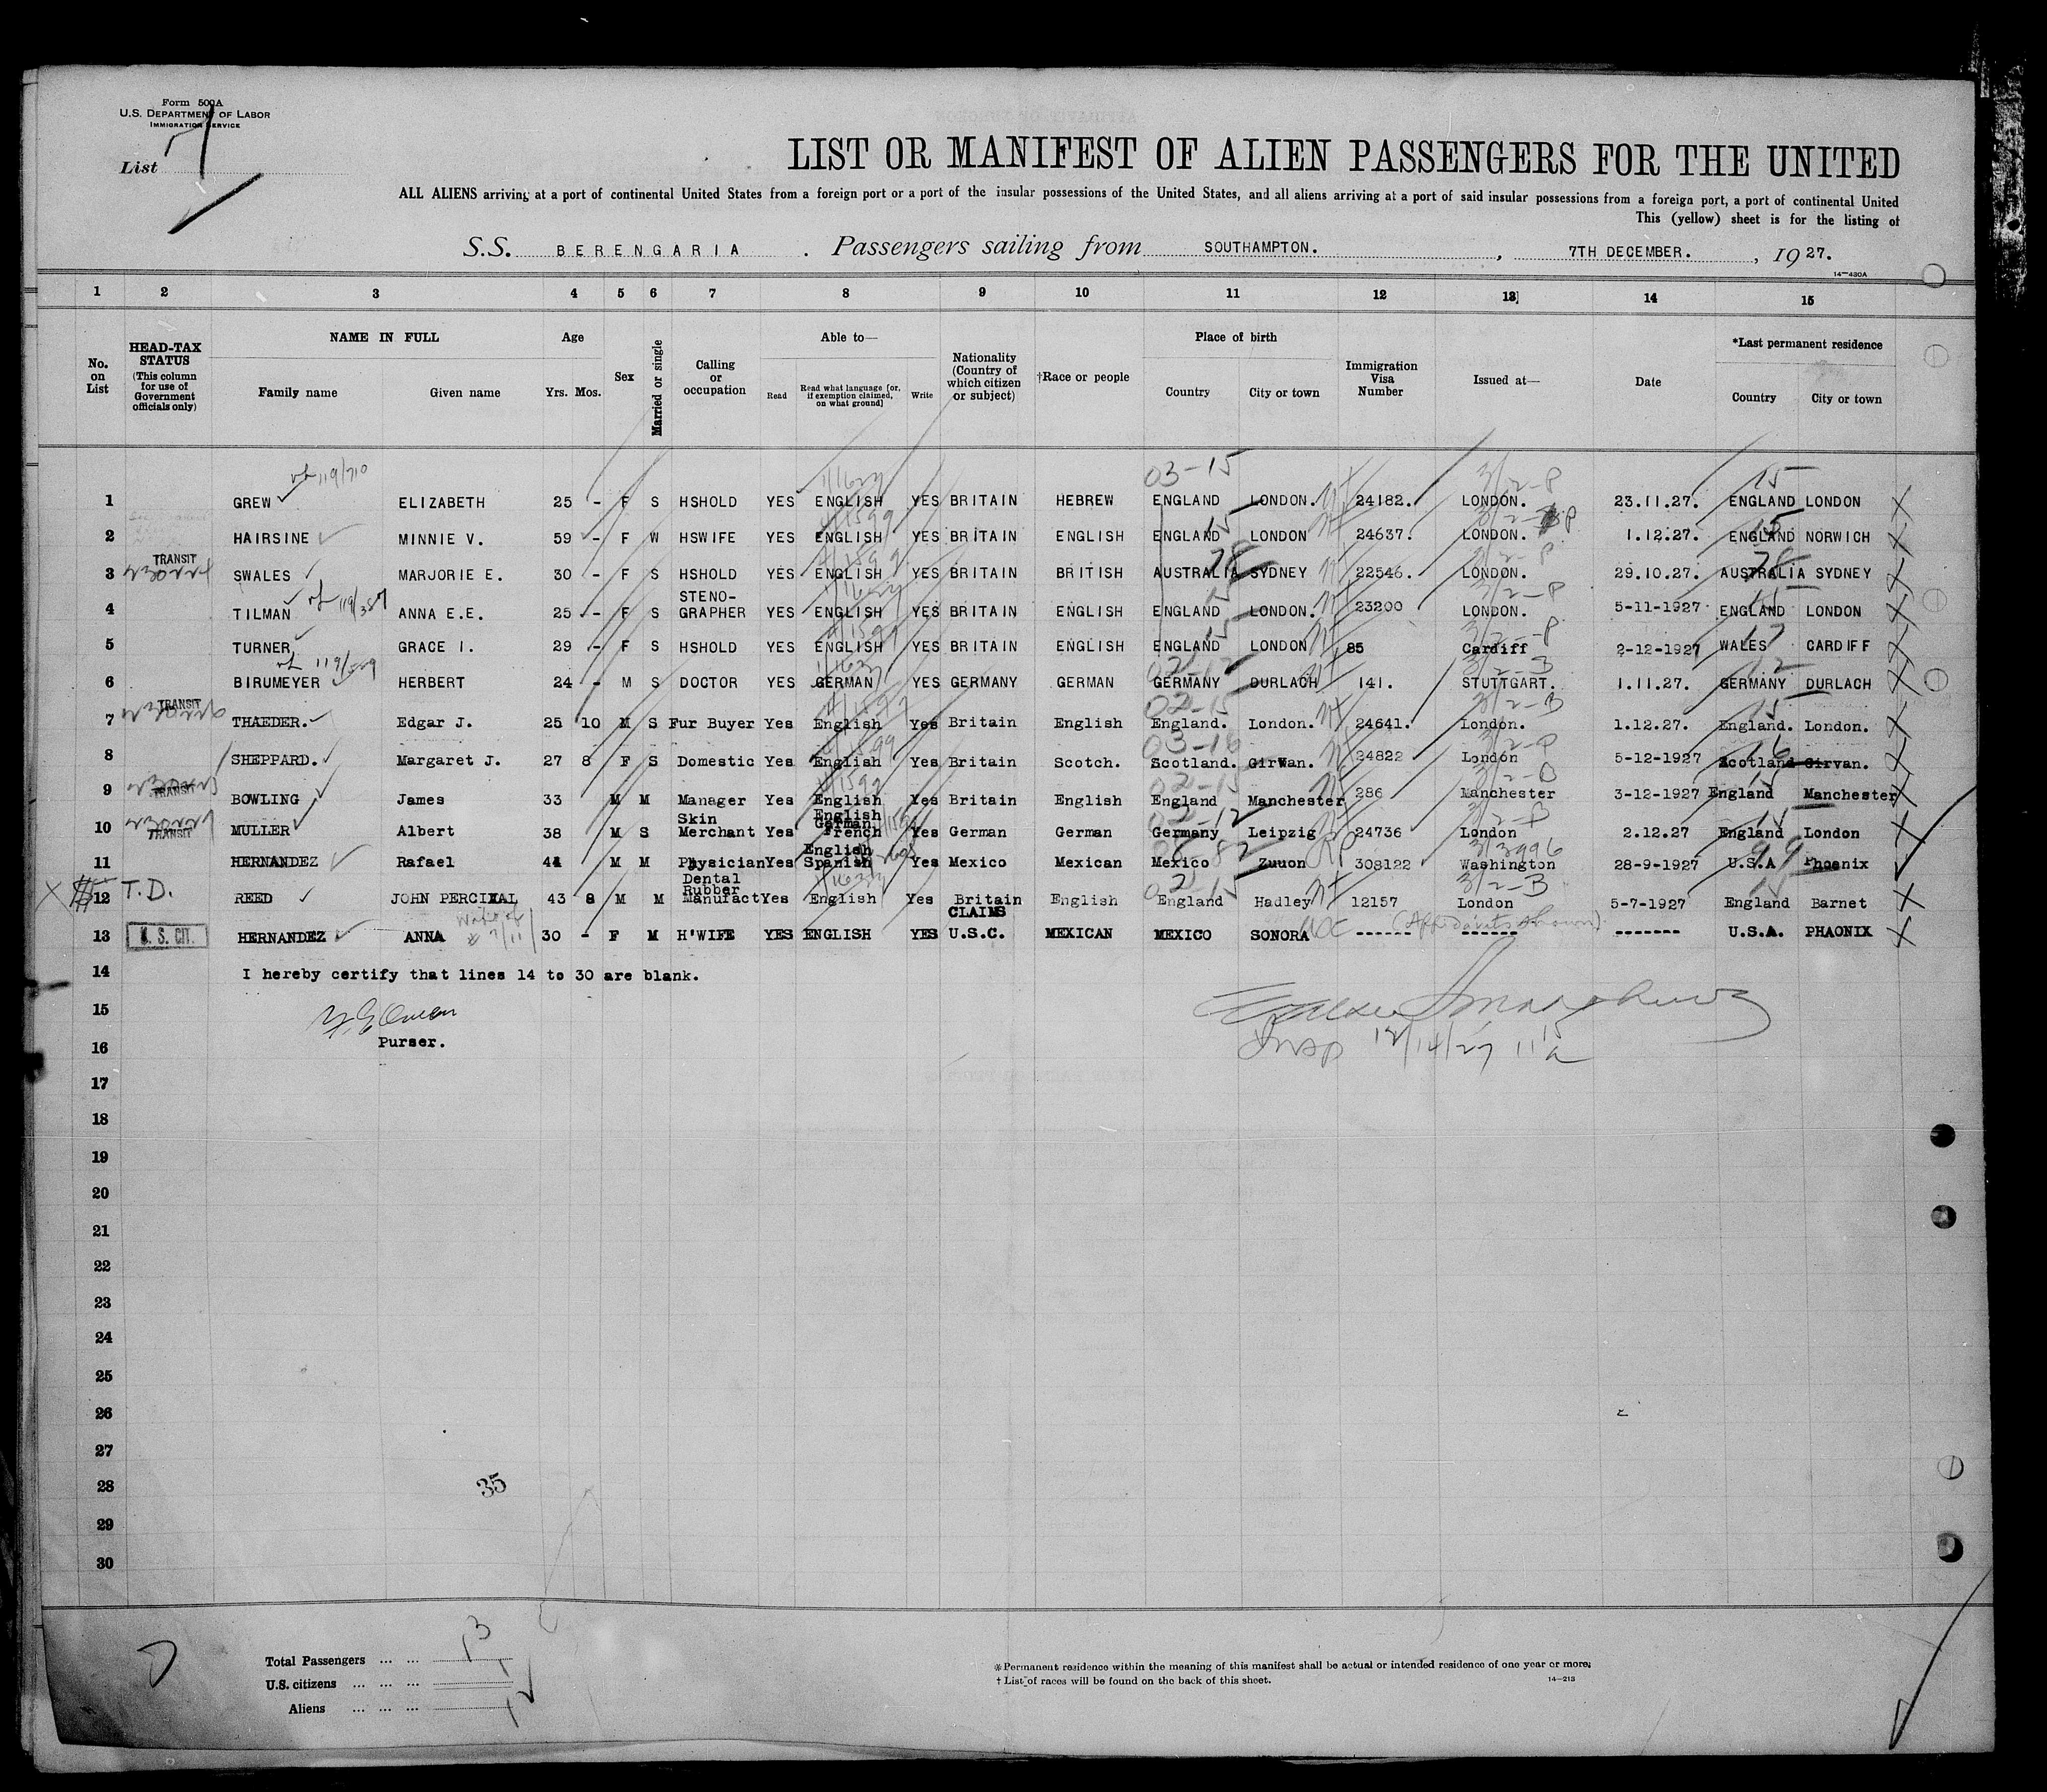 Form 500A
U.S. DEPARTMENT OF LABOR
IMMIGRATION SERVICE
List 7
LIST OR MANIFEST OF ALIEN PASSENGERS FOR THE UNITED
ALL ALIENS arriving at a port of continental United States from a foreign port or a port of the insular possessions of the United States, and all aliens arriving at a port of said insular possessions from a foreign port, a port of continental United
This (yellow) sheet is for the listing of
S.S. BERENGARIA . Passengers sailing from SOUTHAMPTON. , 7TH DECEMBER. , 1927.
14—430A
1 2 3 4 5 6 7 8 9 10 11 12 13 14 15
No. on List
HEAD-TAX STATUS (This column for use of Government officials only)
NAME IN FULL Family name Given name
Age Yrs. Mos.
Sex
Married or single
Calling or occupation
Able to— Read Read what language [or, if exemption claimed, on what ground] Write
Nationality (Country of which citizen or subject)
†Race or people
Place of birth Country City or town
Immigration Visa Number
Issued at—
Date
*Last permanent residence Country City or town
119/710 03-15 15
1 GREW ELIZABETH 25 - F S HSHOLD YES ENGLISH YES BRITAIN HEBREW ENGLAND LONDON. 24182. LONDON. 23.11.27. ENGLAND LONDON
2 HAIRSINE MINNIE V. 59 - F W HSWIFE YES ENGLISH YES BRITAIN ENGLISH ENGLAND LONDON 24637. LONDON. 1.12.27. ENGLAND NORWICH
TRANSIT
3 SWALES MARJORIE E. 30 - F S HSHOLD YES ENGLISH YES BRITAIN BRITISH AUSTRALIA SYDNEY 22546. LONDON. 29.10.27. AUSTRALIA SYDNEY
4 TILMAN ANNA E.E. 25 - F S STENO-GRAPHER YES ENGLISH YES BRITAIN ENGLISH ENGLAND LONDON. 23200 LONDON. 5-11-1927 ENGLAND LONDON
5 TURNER GRACE I. 29 - F S HSHOLD YES ENGLISH YES BRITAIN ENGLISH ENGLAND LONDON 85 Cardiff 2-12-1927 WALES CARDIFF
6 BIRUMEYER HERBERT 24 - M S DOCTOR YES GERMAN YES GERMANY GERMAN GERMANY DURLACH 141. STUTTGART. 1.11.27. GERMANY DURLACH
TRANSIT
7 THAEDER. Edgar J. 25 10 M S Fur Buyer Yes English Yes Britain English England. London. 24641. London. 1.12.27. England. London.
8 SHEPPARD. Margaret J. 27 8 F S Domestic Yes English Yes Britain Scotch. Scotland. Girwan. 24822 London 5-12-1927 Scotland Girvan.
TRANSIT
9 BOWLING James 33 M M Manager Yes English Yes Britain English England Manchester 286 Manchester 3-12-1927 England Manchester
TRANSIT
10 MULLER Albert 38 M S Skin Merchant Yes English German French Yes German German Germany Leipzig 24736 London 2.12.27 England London
11 HERNANDEZ Rafael 44 M M Physician Yes English Spanish Yes Mexico Mexican Mexico Zuuon 308122 Washington 28-9-1927 U.S.A Phoenix
12 T.D. REED JOHN PERCIVAL 43 8 M M Dental Rubber Manufact Yes English Yes Britain English England Hadley 12157 London 5-7-1927 England Barnet
13 U. S. CIT. HERNANDEZ ANNA Wife of # 7/11 30 - F M H'WIFE YES ENGLISH YES CLAIMS U.S.C. MEXICAN MEXICO SONORA ------ (Affidavits shown) ------ ------- U.S.A. PHAONIX
14 I hereby certify that lines 14 to 30 are blank.
15
Purser.
16 Insp 12/14/27 11 15 a
17
18
19
20
21
22
23
24
25
26
27
28 35
29
30
Total Passengers ... ... 13
U.S. citizens ... ... ... 1
Aliens ... ... ... 12
*Permanent residence within the meaning of this manifest shall be actual or intended residence of one year or more.
† List of races will be found on the back of this sheet.
14—213